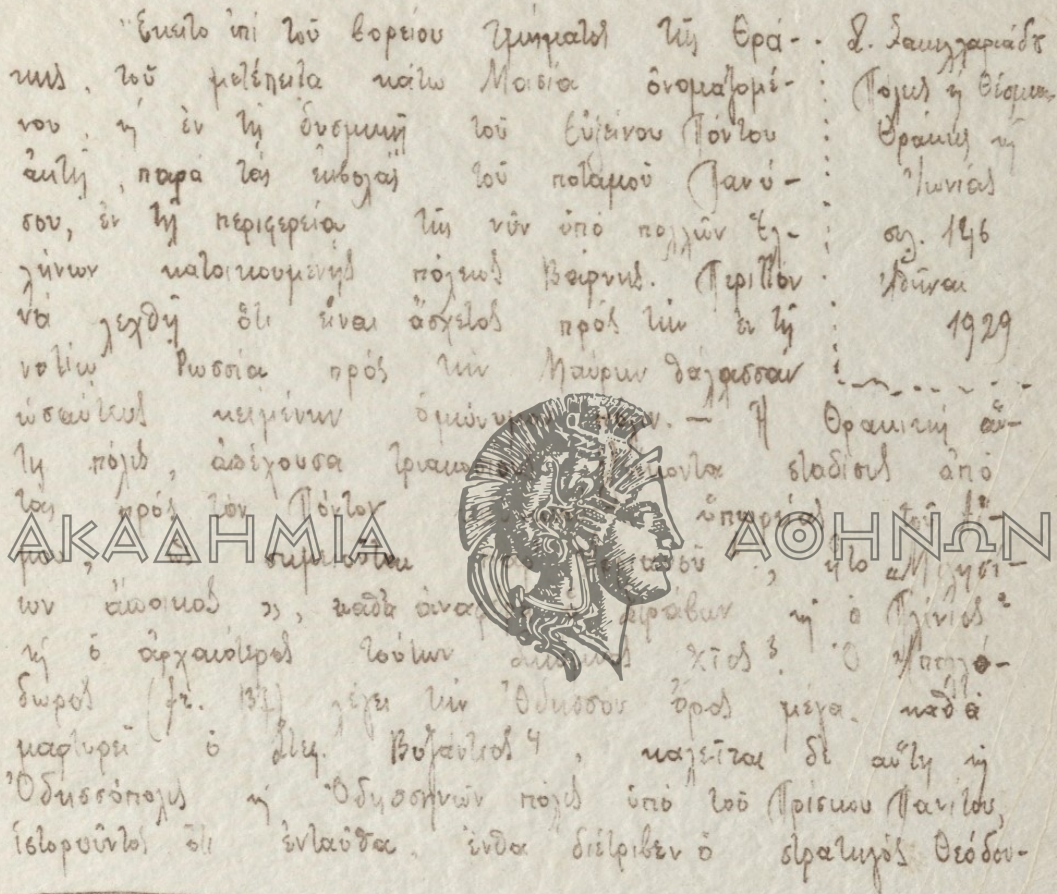 Ἔκειτο ἐπὶ τοῦ βορείου τμήματος τῆς Θρά-
κης, τοῦ μετέπειτα κάτω Μοισία ὀνομαζομέ-
νου, ἢ ἐν τῇ δυσμικῇ τοῦ Εὐξείνου Πόντου
ἀκτῇ, παρὰ τὰς ἐκβολὰς τοῦ ποταμοῦ Πανύ-
σου, ἐν τῇ περιφερείᾳ τῆς νῦν ὑπὸ πολλῶν Ἑλ-
λήνων κατοικουμένης πόλεως Βάρνης. Περιττὸν
νὰ λεχθῇ ὅτι εἶναι ἄσχετος πρὸς τὴν ἐν τῇ
νοτίῳ Ρωσσίᾳ πρὸς τὴν Μαύρην θάλασσαν
ὡσαύτως κειμένην ὁμώνυμον πόλιν. — Ἡ Θρακικὴ αὕ-
τη πόλις, ἀπέχουσα σταδίους ἀπὸ
τὰς πρὸς τὸν Πόντον ὑπωρείας τοῦ Αἵ-
μου, ὡς σημειοῦται ἦτο «Μιλησί-
ων ἄποικος», καθὰ Στράβων ἢ ὁ Πλίνιος²
ἢ ὁ ἀρχαιότερος τούτων Χῖος³. Ὁ Ἀπολλό-
δωρος (fr. ) λέγει τὴν Ὀδησσὸν ὄρος μέγα, καθὰ
μαρτυρεῖ ὁ Στεφ. Βυζάντιος⁴, καλεῖται δὲ αὕτη ἢ
Ὀδησσόπολις ἢ Ὀδησσηνῶν πόλις ὑπὸ τοῦ Πρίσκου Πανίτου,
ἱστοροῦντος ὅτι ἐνταῦθα, ἔνθα διέτριβεν ὁ στρατηγὸς Θεόδου-
Σακελλαριάδου
Πόλεις ἢ Θέσμια
Θράκης ἢ
Ἰωνίας
σελ. 146
Ἀθῆναι
1929
ΑΚΑΔΗΜΙΑ ΑΘΗΝΩΝ